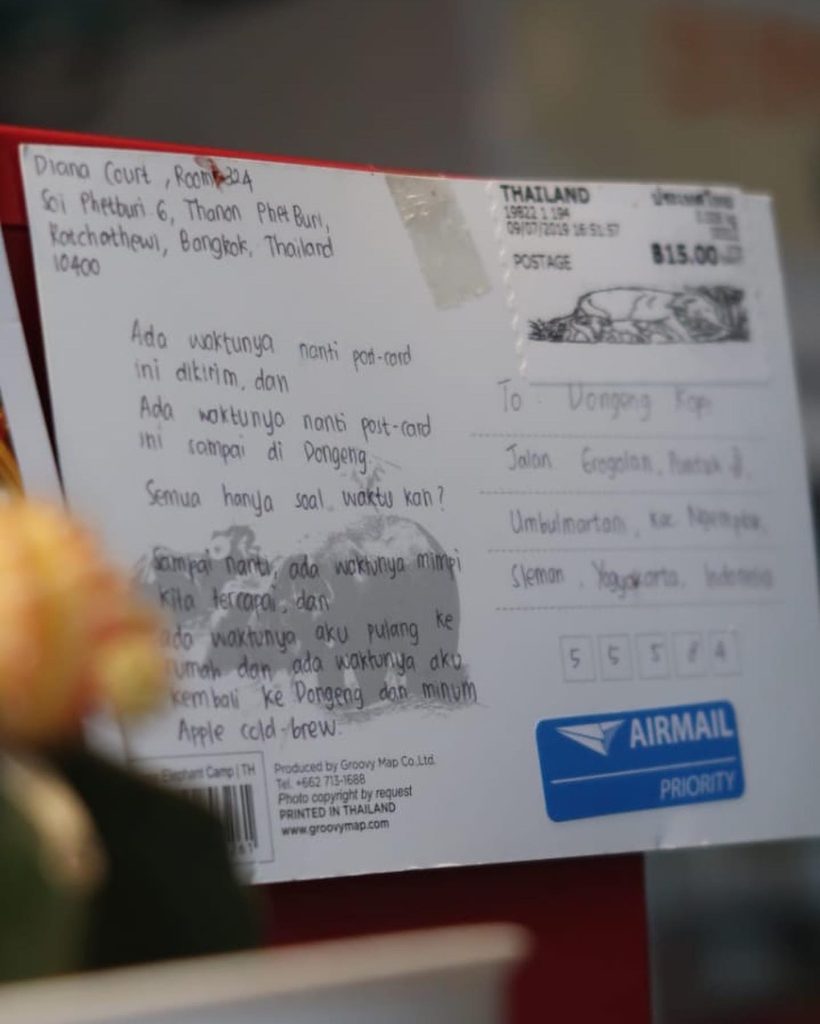 Diana Court, Room 324
Soi Phetburi 6, Thanon Phet Buri,
Ratchathewi, Bangkok, Thailand
10400
THAILAND
09/07/2019 16:51:57
POSTAGE
฿15.00
Ada waktunya nanti post-card
ini dikirim, dan
Ada waktunya nanti post-card
ini sampai di Dongeng.
Semua hanya soal waktu kan?
Sampai nanti, ada waktunya mimpi
kita tercapai, dan
ada waktunya aku pulang ke
rumah dan ada waktunya aku
kembali ke Dongeng dan minum
Apple cold-brew.
To : Dongeng Kopi
Jalan
Umbulmartani, Kec Ngemplak,
Sleman, Yogyakarta, Indonesia
5 5 5 8 4
AIRMAIL
PRIORITY
Elephant Camp | TH
Produced by Groovy Map Co.,Ltd.
Tel. +662 713-1688
Photo copyright by request
PRINTED IN THAILAND
www.groovymap.com